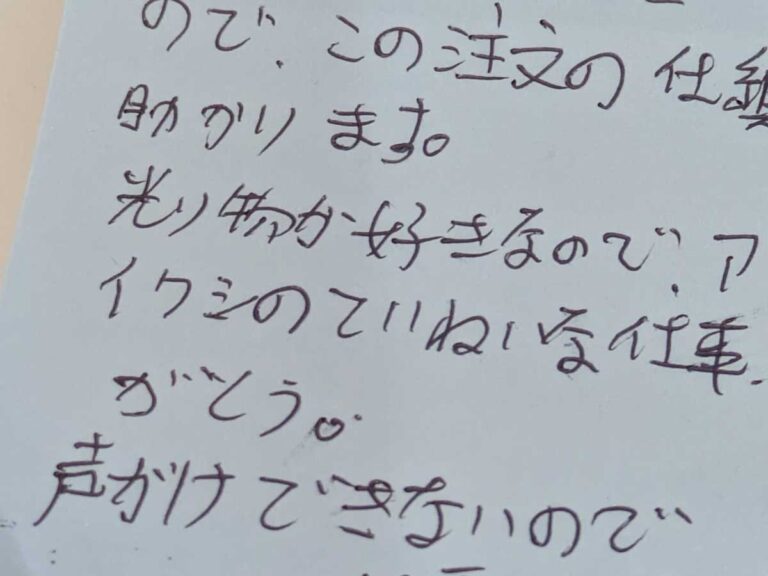 ので、この注文の仕組
助かります。
光り物が好きなので、ア
イワシのていねいな仕事、
がとう。
声がけできないので